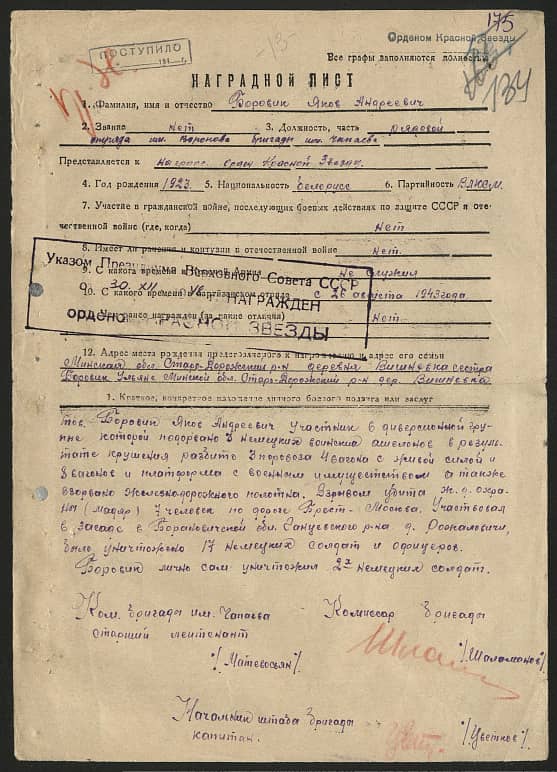 175
Орденом Красной Звезды
ПОСТУПИЛО
194 г.
-13-
134
Все графы заполняются полностью
НАГРАДНОЙ ЛИСТ
1. Фамилия, имя и отчество Боровик Яков Андреевич
2. Звание нет 3. Должность, часть рядовой
отряда им. Воронова бригады им. Чапаева
Представляется к награде орден Красной Звезды
4. Год рождения 1923. 5. Национальность белорусс 6. Партийность ВЛКСМ.
7. Участие в гражданской войне, последующих боевых действиях по защите СССР и оте-
чественной войне (где, когда) Нет
8. Имеет ли ранения и контузии в отечественной войне Нет.
9. С какого времени в Красной Армии Не служил
10. С какого времени в партизанском отряде с 26 августа 1943 года.
11. Чем ранее награжден (за какие отличия) Нет
Указом Президиума Верховного Совета СССР
30. XII 48 г. НАГРАЖДЕН
орденом КРАСНОЙ ЗВЕЗДЫ
12. Адрес места рождения представляемого к награждению и адрес его семьи
Минская обл. Старо-Дорожский р-н деревня Вишновка сестра
Боровик Ульяне Минской обл. Старо-Дорожский р-н дер. Вишновка
1. Краткое, конкретное изложение личного боевого подвига или заслуг
тов. Боровик Яков Андреевич участник в диверсионной гру-
пе которой подорвано 3 немецких воинских эшелонов в резуль-
тате крушения разбито 3 паровоза 4 вагона с живой силой и
8 вагонов и платформа с военным имуществом а также
взорвано железнодорожного полотна. Взрывом убита ж. д. охра-
ны (мадяр) 7 человек по дороге Брест-Москва. Участвовал
в засаде в Барановичской обл. Ганцевского р-на д.
было уничтожено 17 немецких солдат и офицеров.
Боровик лично сам уничтожил 2х немецких солдат.
Ком. бригады им. Чапаева Комиссар бригады
старший лейтенант
/Матевосьян/ /Шаламанов/
Начальник штаба бригады
капитан. /Цветков/